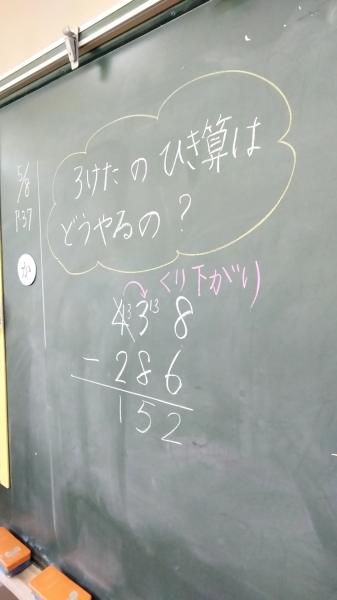 5/8
P.37
か
3けたの ひき算は
どうやるの?
くり下がり
4 3 3 13 8
- 2 8 6
1 5 2